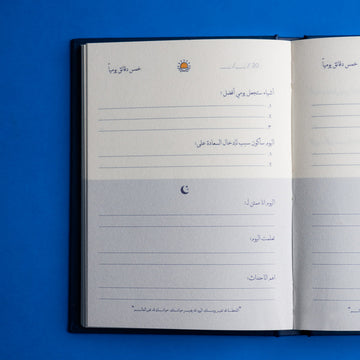 خمس دقائق يومياً
20 / __ / __
أشياء ستجعل يومي أفضل:
١.
٢.
٣.
اليوم سأكون سبب لإدخال السعادة على:
١.
٢.
اليوم انا ممتن لـ:
تعلمت اليوم:
اهم الاحداث:
خمس دقائق يومياً